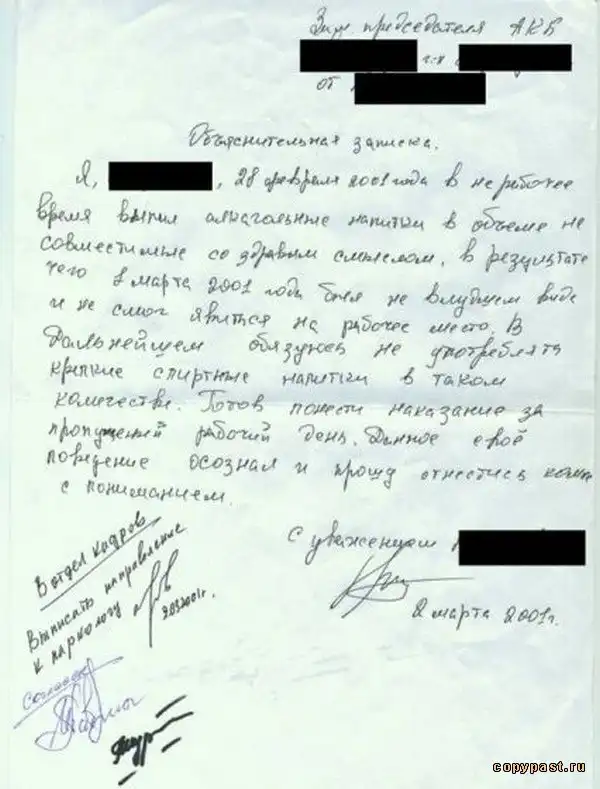 Зам председателя АКБ
г-ну
от
Объяснительная записка.
Я, , 28 февраля 2001 года в не рабочее
время выпил алкагольные напитки в объеме не
совместимые со здравым смыслом, в результате
чего 1 марта 2001 года был не в лудшем виде
и не смог явиться на рабочее место. В
дальнейшем обязуюсь не употреблять
крепкие спиртные напитки в таком
количестве. Готов понести наказание за
пропущенный рабочий день. Данное своё
поведение осознал и прошу отнестись комне
с пониманием.
С уважением
2 марта 2001г.
В отдел кадров
Выписать направление
к наркологу
согласен
copypast.ru